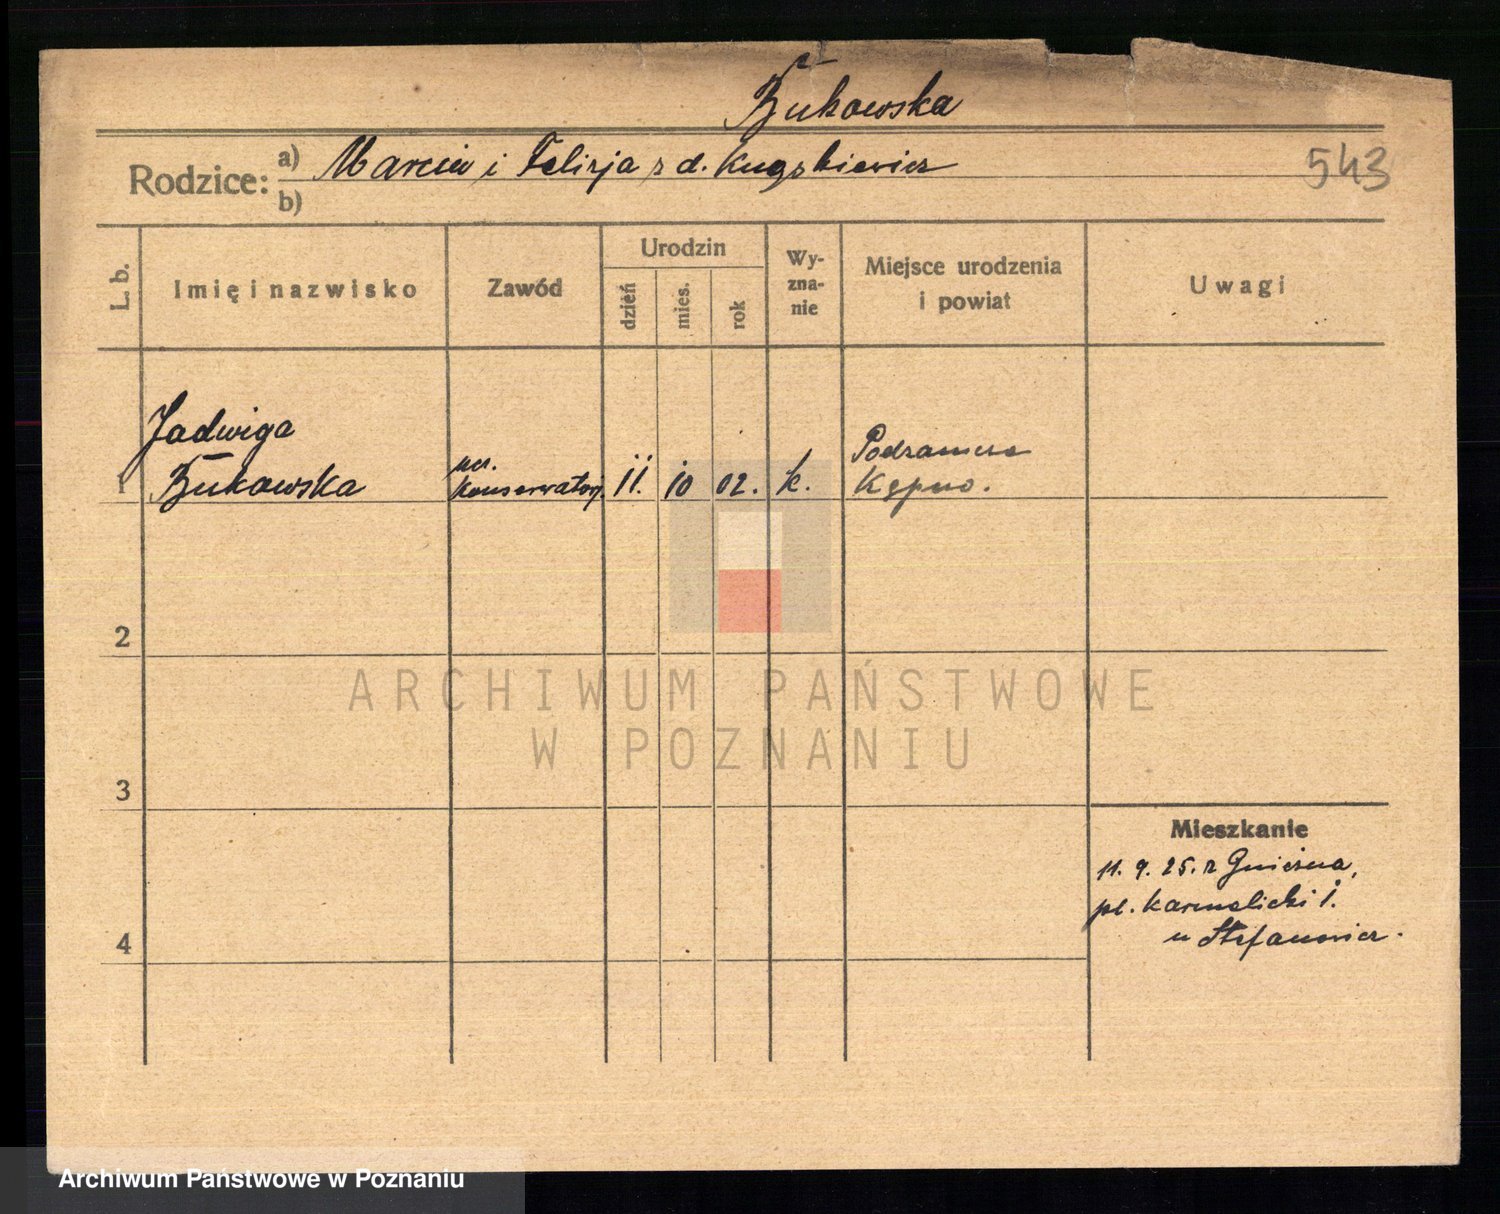 Bukowska
Rodzice: a) Marcin i Felizja z d. Kugskiewicz
b)
543
L. b.
Imię i nazwisko
Zawód
Urodzin
dzień
mies.
rok
Wy-
zna-
nie
Miejsce urodzenia
i powiat
Uwagi
Jadwiga
1 Bukowska
ucz.
Konserwatorj.
11. 10 02. k.
Podzamcze
Kępno.
2
3
4
Mieszkanie
11. 9. 25. z Gniezna,
pl. Karmelicki 1.
u Stefanowicz.
ARCHIWUM PAŃSTWOWE
W POZNANIU
Archiwum Państwowe w Poznaniu